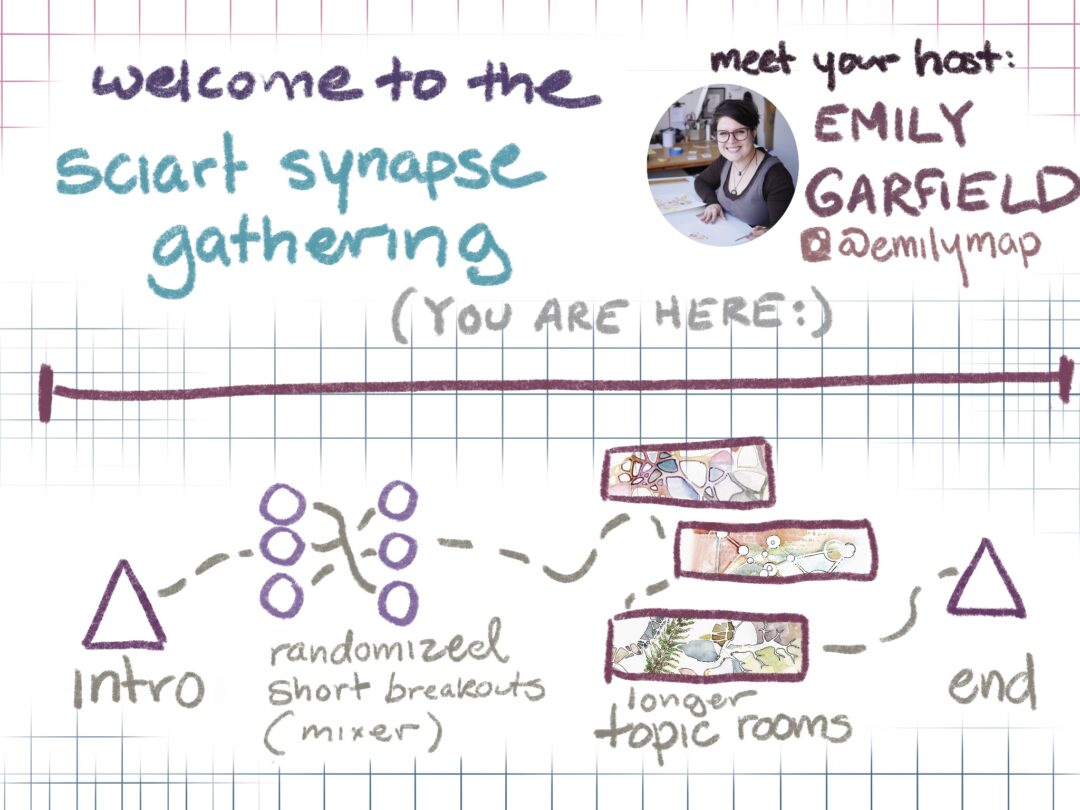 welcome to the
sciart synapse
gathering
meet your host:
EMILY
GARFIELD
@emilymap
(YOU ARE HERE:)
intro
randomized
short breakouts
(mixer)
longer
topic rooms
end